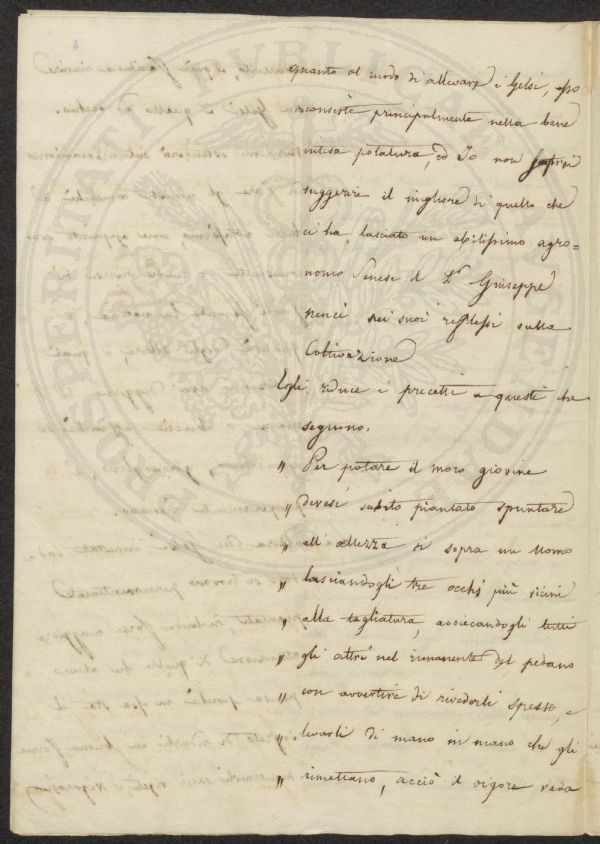 quanto al modo di allevare i Gelsi, esso
consiste principalmente nella bene
intesa potatura, ed Io non saprei
suggerire il migliore di quello che
ci ha lasciato un abilissimo agro=
nomo Senese il Dr Giuseppe
Nenci nei suoi riflessi sulla
Coltivazione
Egli riduce i precetti a questi che
seguono.
" Per potare il moro giovine
" devesi subito piantato spuntare
" all' altezza di sopra un Uomo
" lasciandogli tre occhi più vicini
" alla tagliatura, acciecandogli tutti
" gli altri nel rimanente del pedano
" con avvertire di rivederli spesso, e
" levarli di mano in mano che gli
" rimettano, acciò il vigore vada